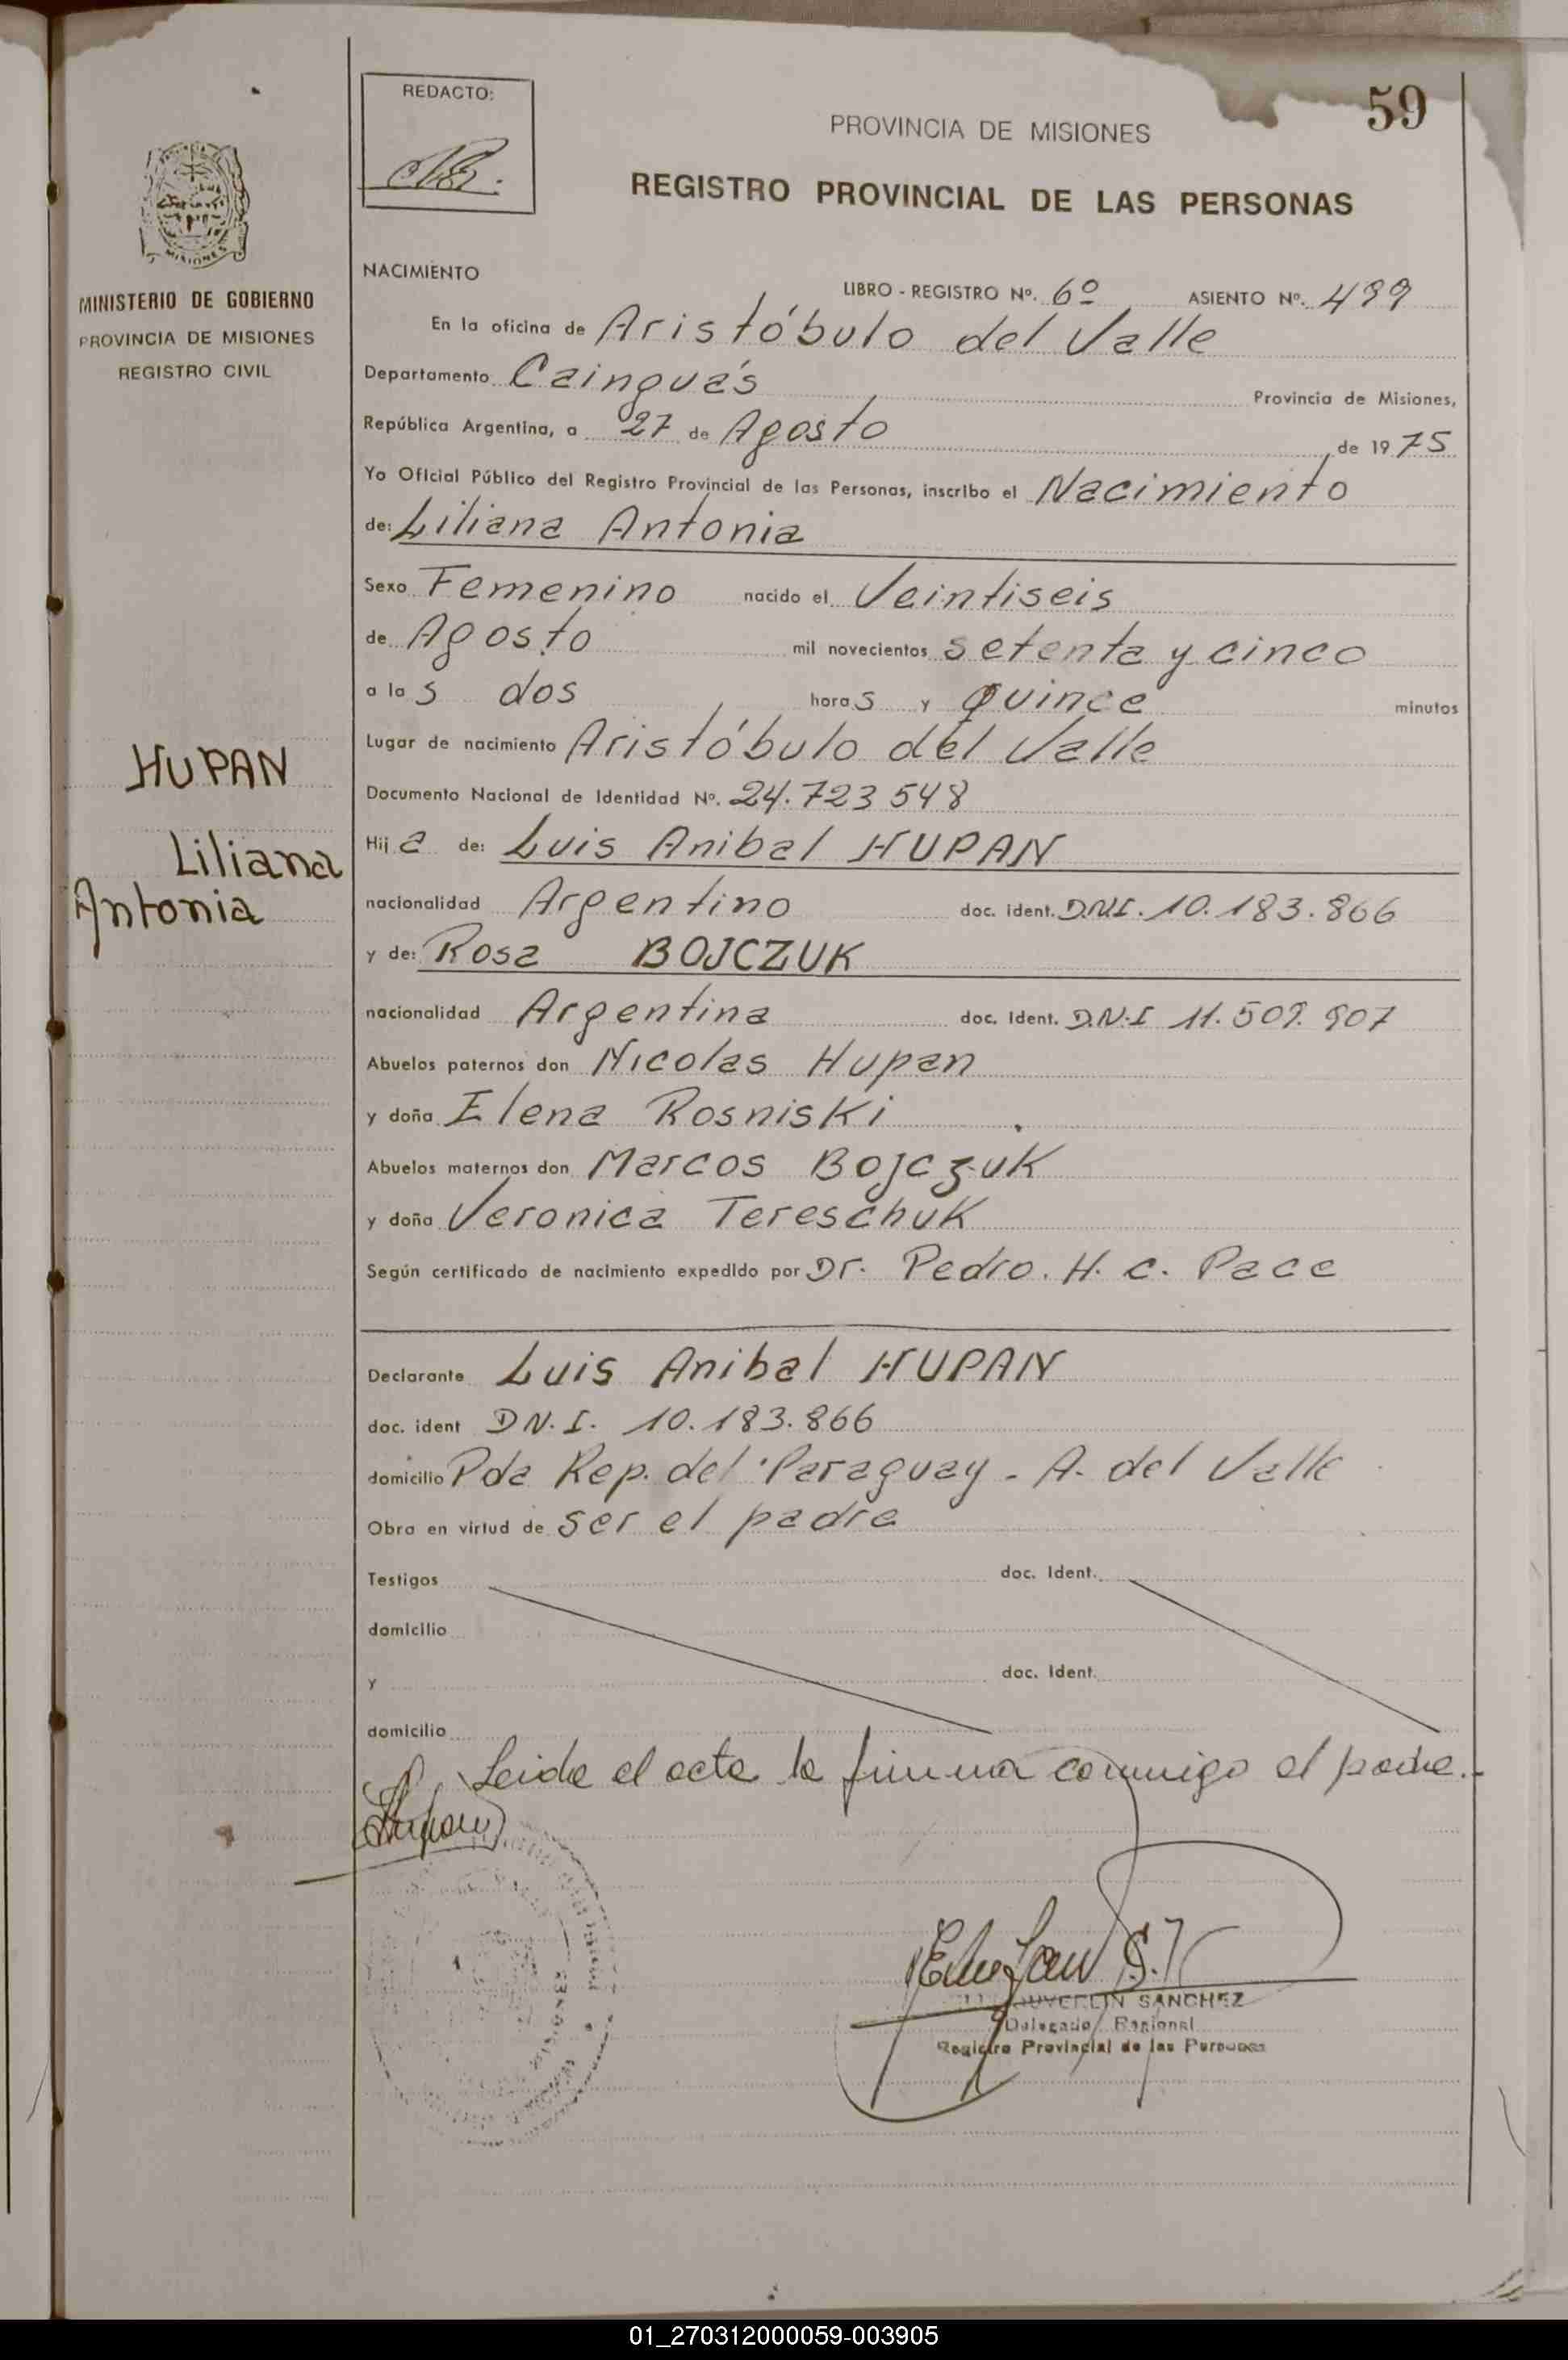 59
REDACTO:
PROVINCIA DE MISIONES
REGISTRO PROVINCIAL DE LAS PERSONAS
MISIONES
MINISTERIO DE GOBIERNO
PROVINCIA DE MISIONES
REGISTRO CIVIL
NACIMIENTO
LIBRO - REGISTRO Nº. 6º ASIENTO Nº. 499
En la oficina de Aristóbulo del Valle
Departamento Cainguás Provincia de Misiones,
República Argentina, a 27 de Agosto de 1975
Yo Oficial Público del Registro Provincial de las Personas, inscribo el Nacimiento
de: Liliana Antonia
Sexo Femenino nacido el Veintiseis
de Agosto mil novecientos setenta y cinco
a las dos horas y quince minutos
Lugar de nacimiento Aristóbulo del Valle
Documento Nacional de Identidad Nº. 24.723548
HUPAN
Liliana
Antonia
Hija de: Luis Anibal HUPAN
nacionalidad Argentino doc. ident. D.N.I. 10.183.866
y de: Rosa BOJCZUK
nacionalidad Argentina doc. Ident. D.N.I 11.509.907
Abuelos paternos don Nicolas Hupan
y doña Elena Rosniski
Abuelos maternos don Marcos Bojczuk
y doña Veronica Tereschuk
Según certificado de nacimiento expedido por Dr. Pedro. H. C. Pace
Declarante Luis Anibal HUPAN
doc. ident D.N.I. 10.183.866
domicilio Pda Rep. del Paraguay - A. del Valle
Obra en virtud de ser el padre
Testigos doc. Ident.
domicilio
y doc. Ident.
domicilio
Leida el acta la firma conmigo el padre.-
Hupan
SANCHEZ
Delegado Regional
Registro Provincial de las Personas
01_270312000059-003905